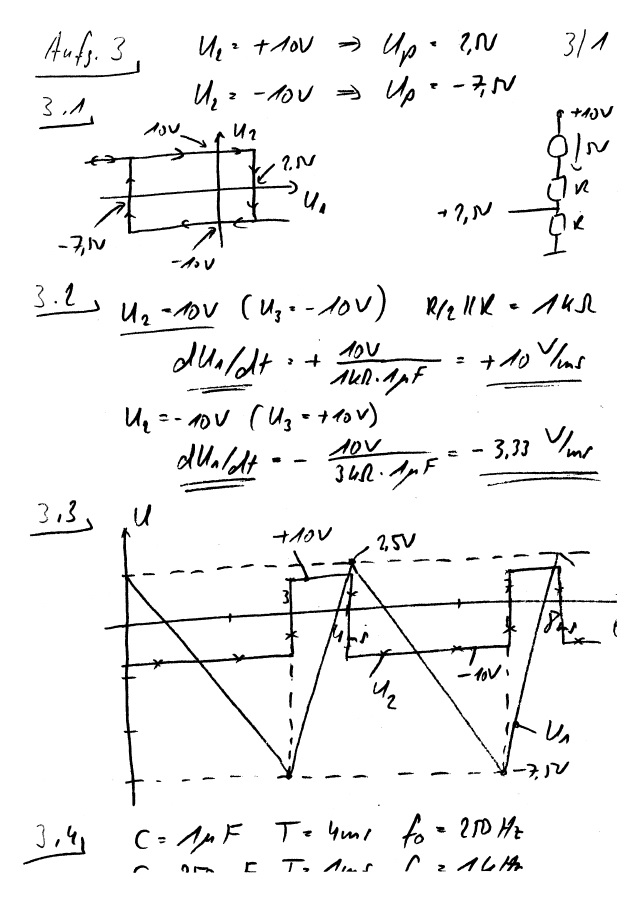 Aufg. 3 U₂ = +10V ⇒ Up = 2,5V 3/1
3.1 U₂ = -10V ⇒ Up = -7,5V
10V U₂ 2,5V U₁
-7,5V -10V
+10V
5V
R
+2,5V R
3.2 U₂ = 10V (U₃ = -10V) R/2 || R = 1kΩ
dU₁/dt = + 10V / 1kΩ · 1µF = +10 V/ms
U₂ = -10V (U₃ = +10V)
dU₁/dt = - 10V / 3kΩ · 1µF = -3,33 V/ms
3.3 U +10V 2,5V
3 4ms 8ms
U₂ -10V
U₁
-7,5V
3.4 C = 1µF T = 4ms f₀ = 250 Hz
T = 1ms = 1kHz